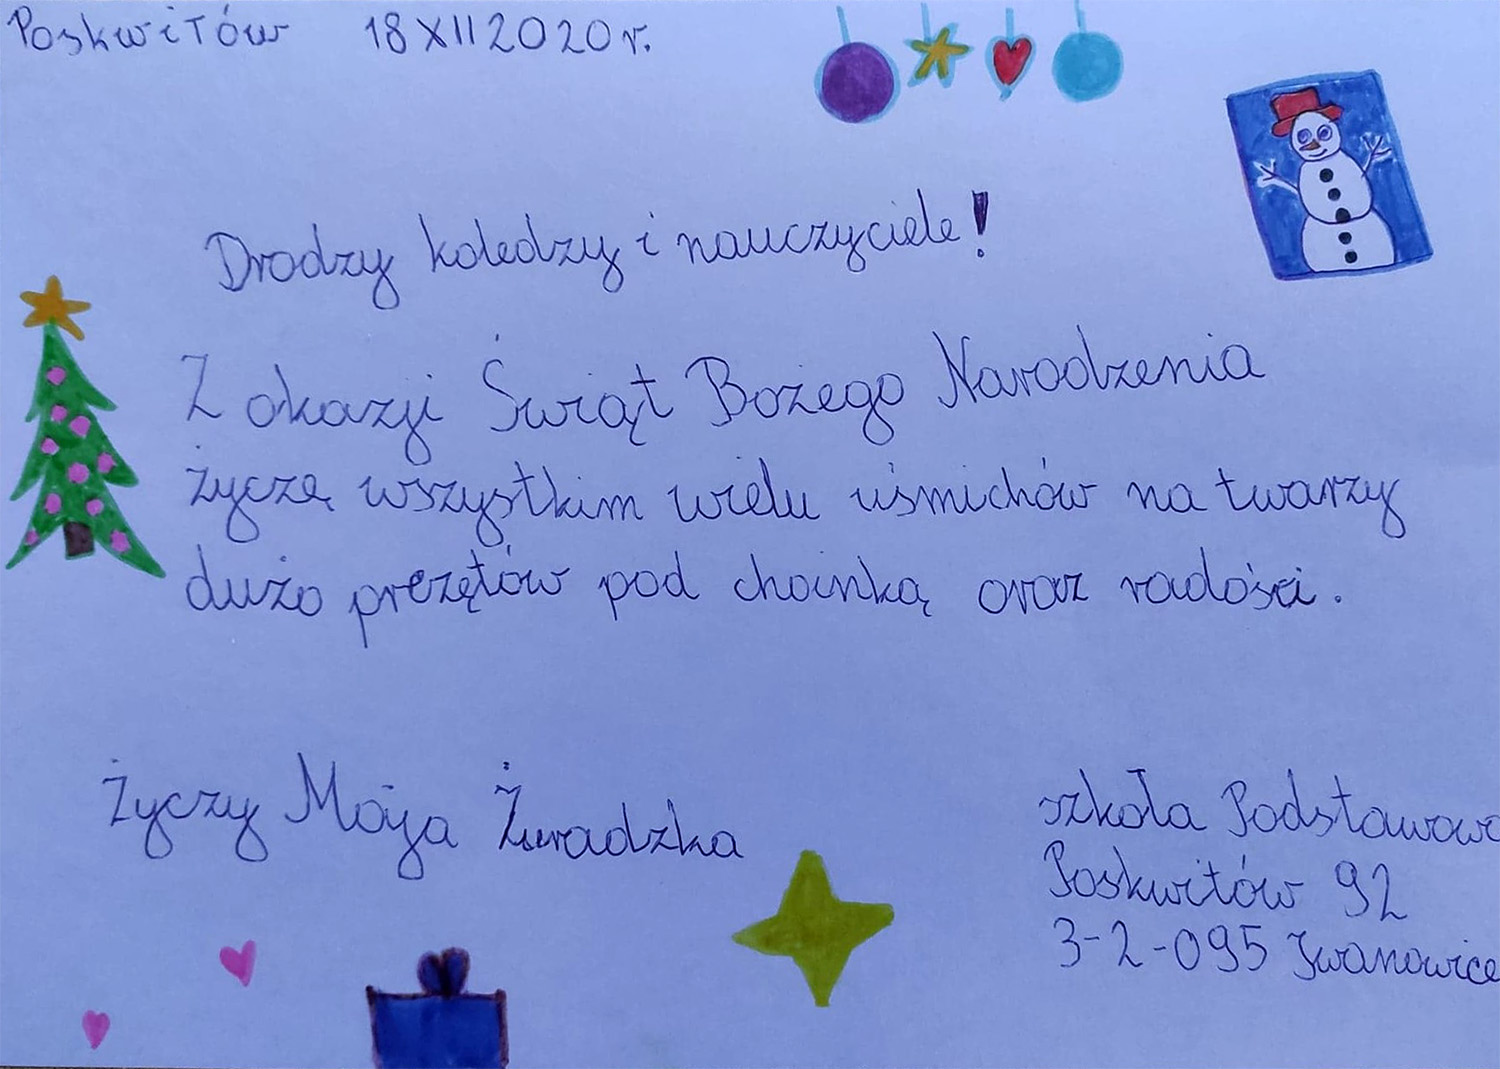 Poskwitów 18 XII 2020 r.
Drodzy koledzy i nauczyciele!
Z okazji Świąt Bożego Narodzenia
życzę wszystkim wielu uśmichów na twarzy
dużo prezętów pod choinką oraz radości.
Życzy Maja Żuradzka
szkoła Podstawowa
Poskwitów 92
3-2-095 Iwanowice